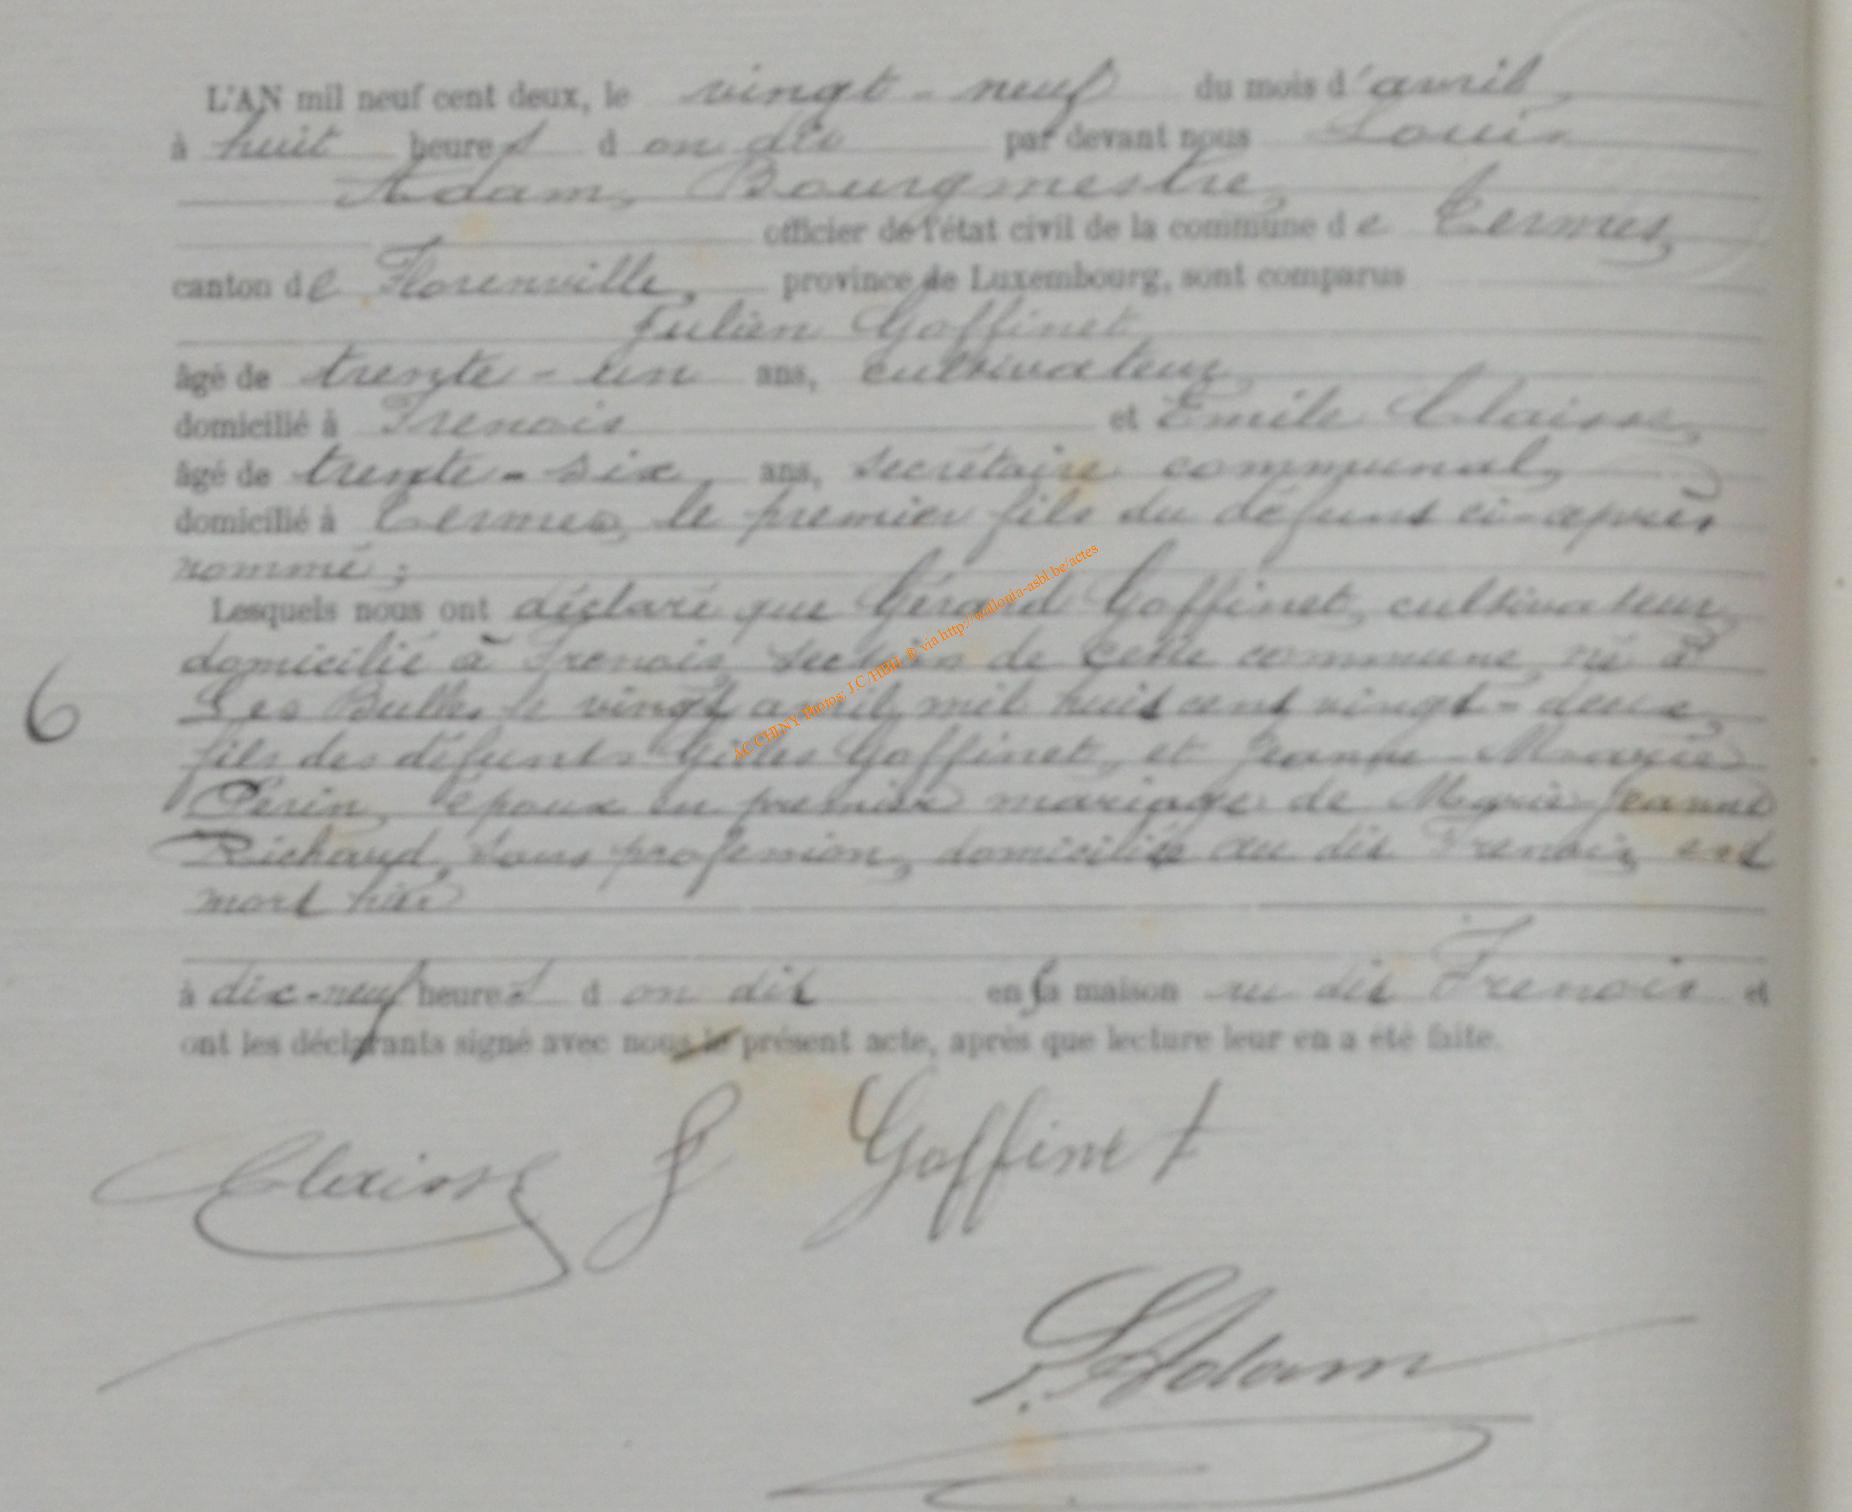 L'AN mil neuf cent deux, le vingt-neuf du mois d'avril,
à huit heures d on dit par devant nous Louis
Adam, Bourgmestre,
officier de l'état civil de la commune de Termes,
canton de Florenville, province de Luxembourg, sont comparus
Julien Goffinet
âgé de trente-un ans, cultivateur
domicilié à Frenois et Emile Claisse,
âgé de trente-six ans, secrétaire communal,
domicilié à Termes, le premier fils du défunt ci-après
nommé;
Lesquels nous ont déclaré que Gérard Goffinet, cultivateur,
domicilié à Frenois, section de cette commune, né à
Les Bulles le vingt avril mil huit cent vingt-deux,
fils des défunts Gilles Goffinet, et Jeanne Marie
Perin, époux en premier mariage de Marie Jeanne
Richard, sans profession, domiciliée au dit Frenois, est
mort hier
à dix-neuf heures d on dit en sa maison au dit Frenois et
ont les déclarants signé avec nous le présent acte, après que lecture leur en a été faite.
6
Claisse J Goffinet
L. Adam
AC CHINY Photos: J.C/HBH ® via http://wallonia-asbl.be/actes